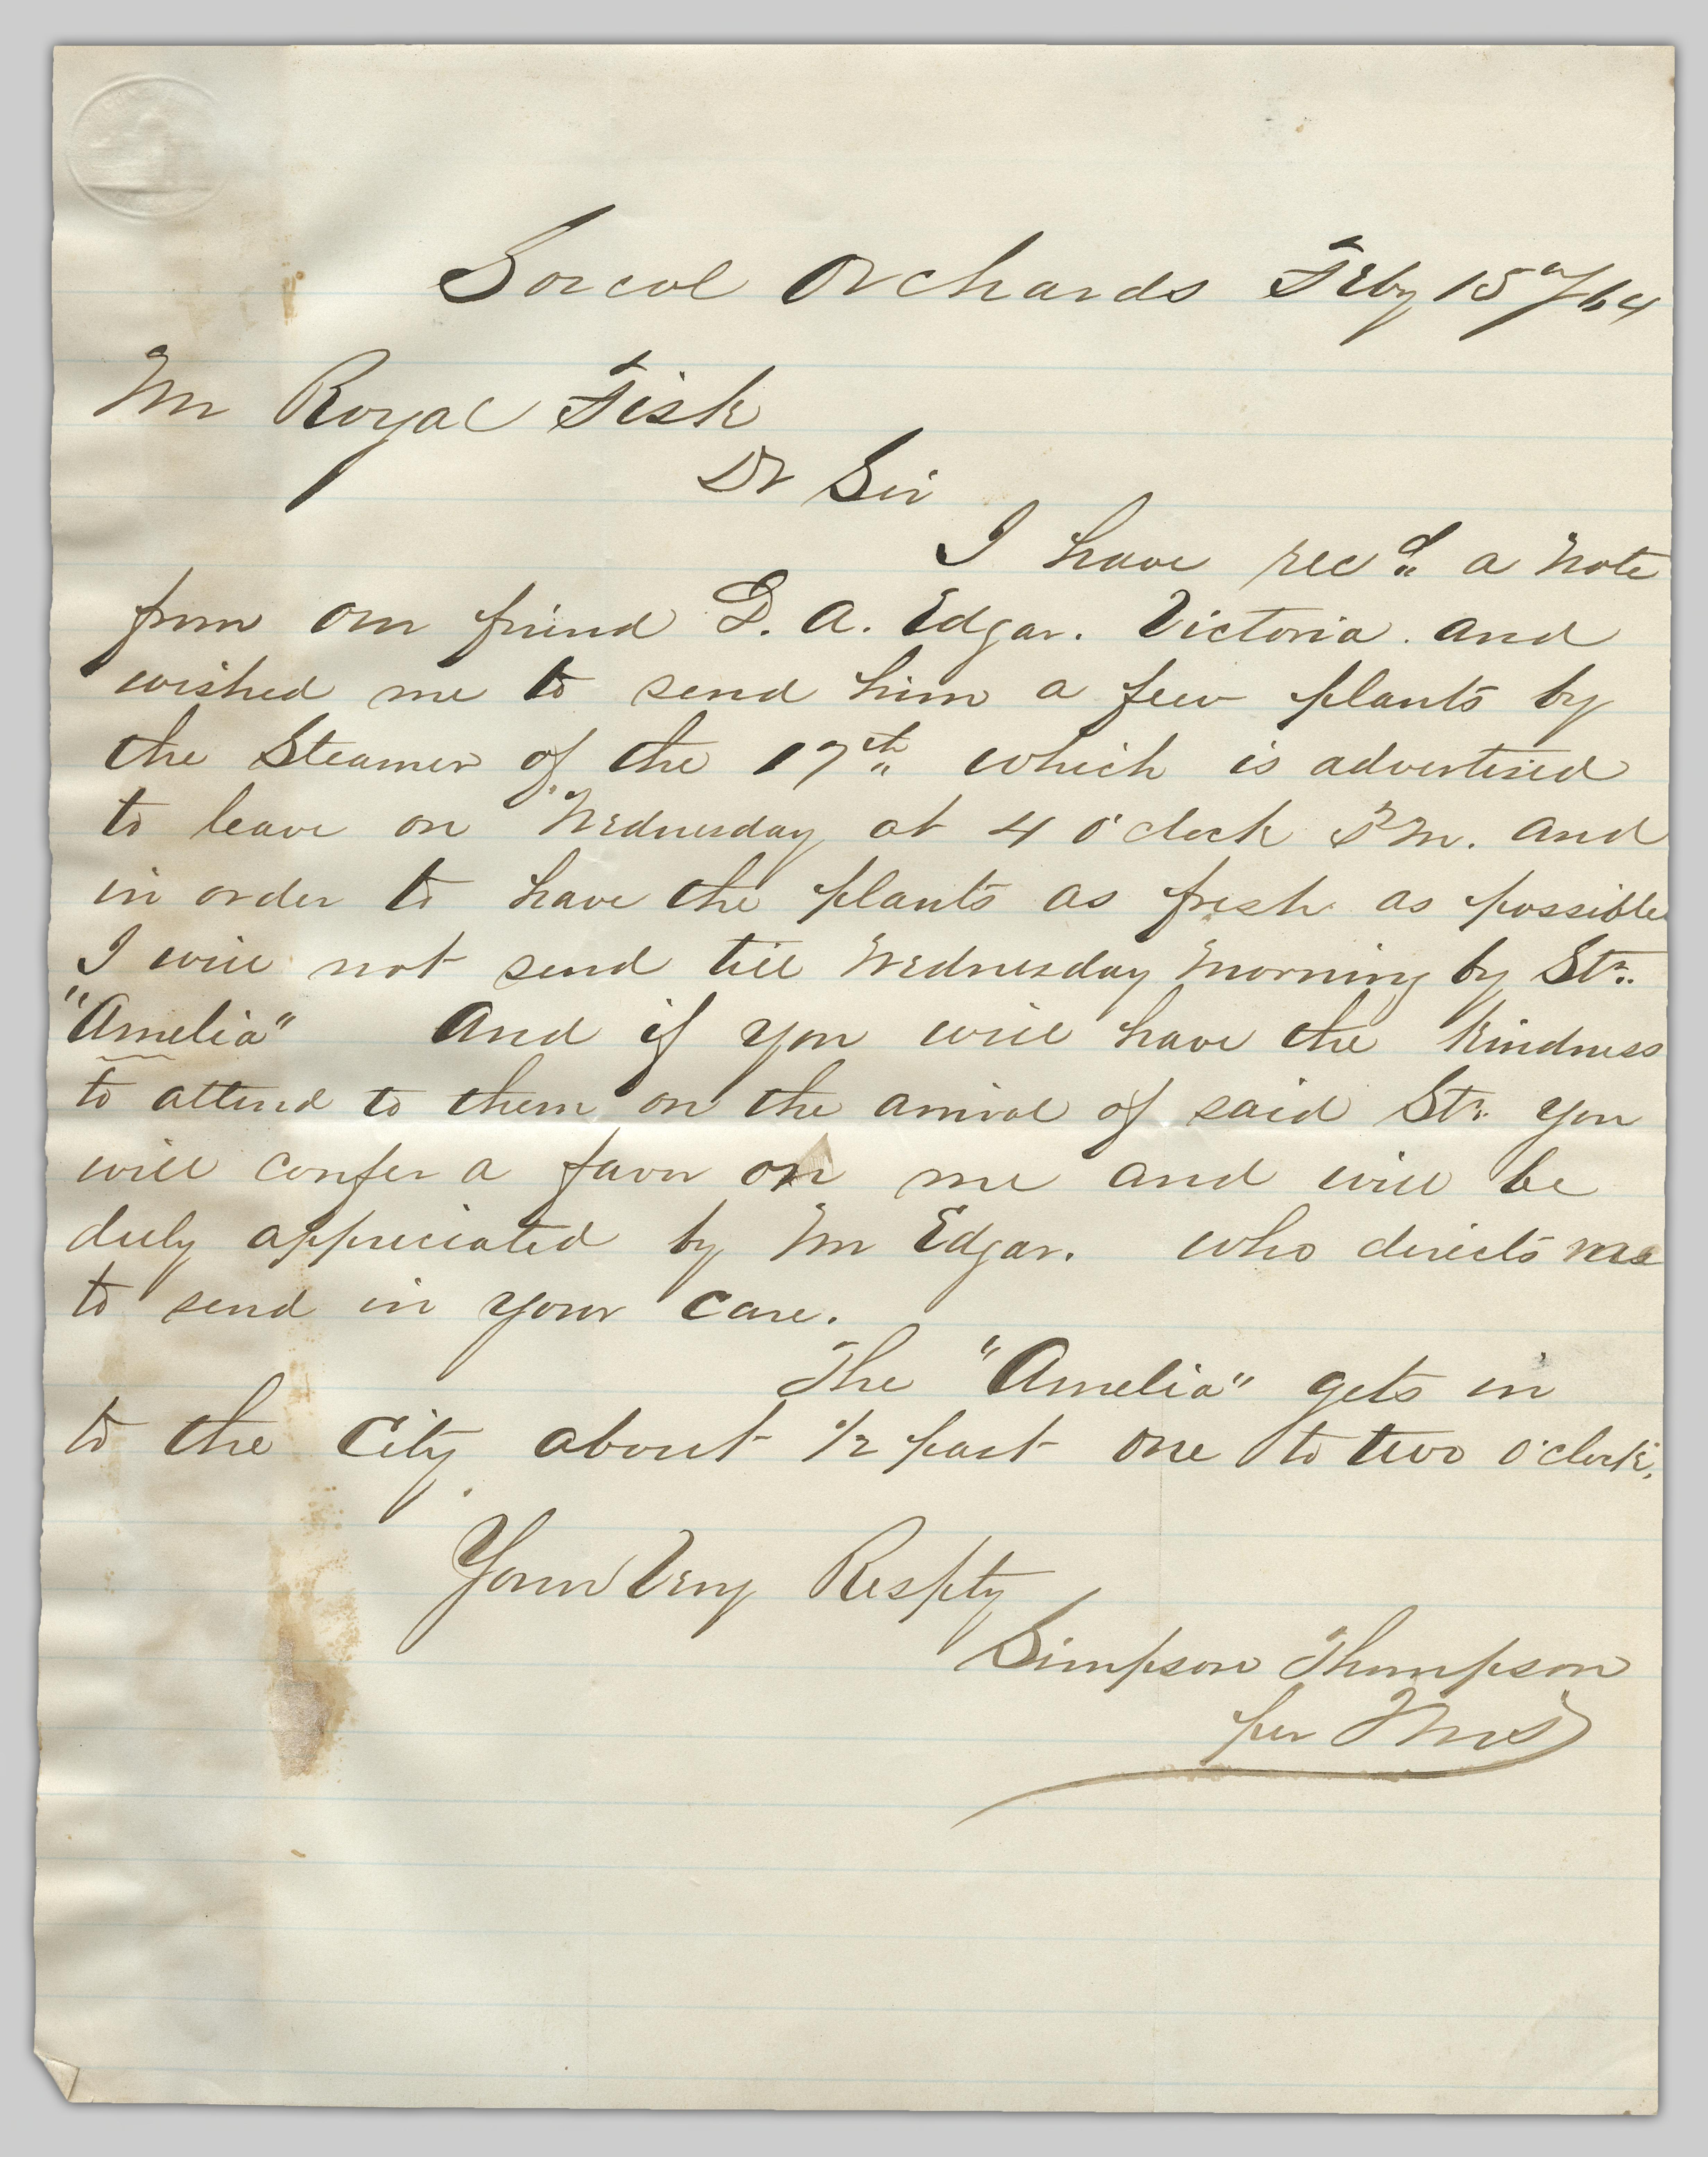 Soscol Orchards Feby 15"/64
Mr Royal Fisk
Dr Sir
I have recd a note
from our friend D. A. Edgar. Victoria. and
wished me to send him a few plants by
the Steamer of the 17th which is advertised
to leave on Wednesday at 4 O'clock P M. and
in order to have the plants as fresh as possible
I will not send till Wednesday Morning by Str.
"Amelia" And if you will have the kindness
to attend to them on the arrival of said Str. you
will confer a favor on me and will be
duly appreciated by Mr Edgar. who directs me
to send in your Care.
The "Amelia" gets in
to the City about 1/2 past one to two O'clock.
Yours Very Respty
Simpson Thompson
per